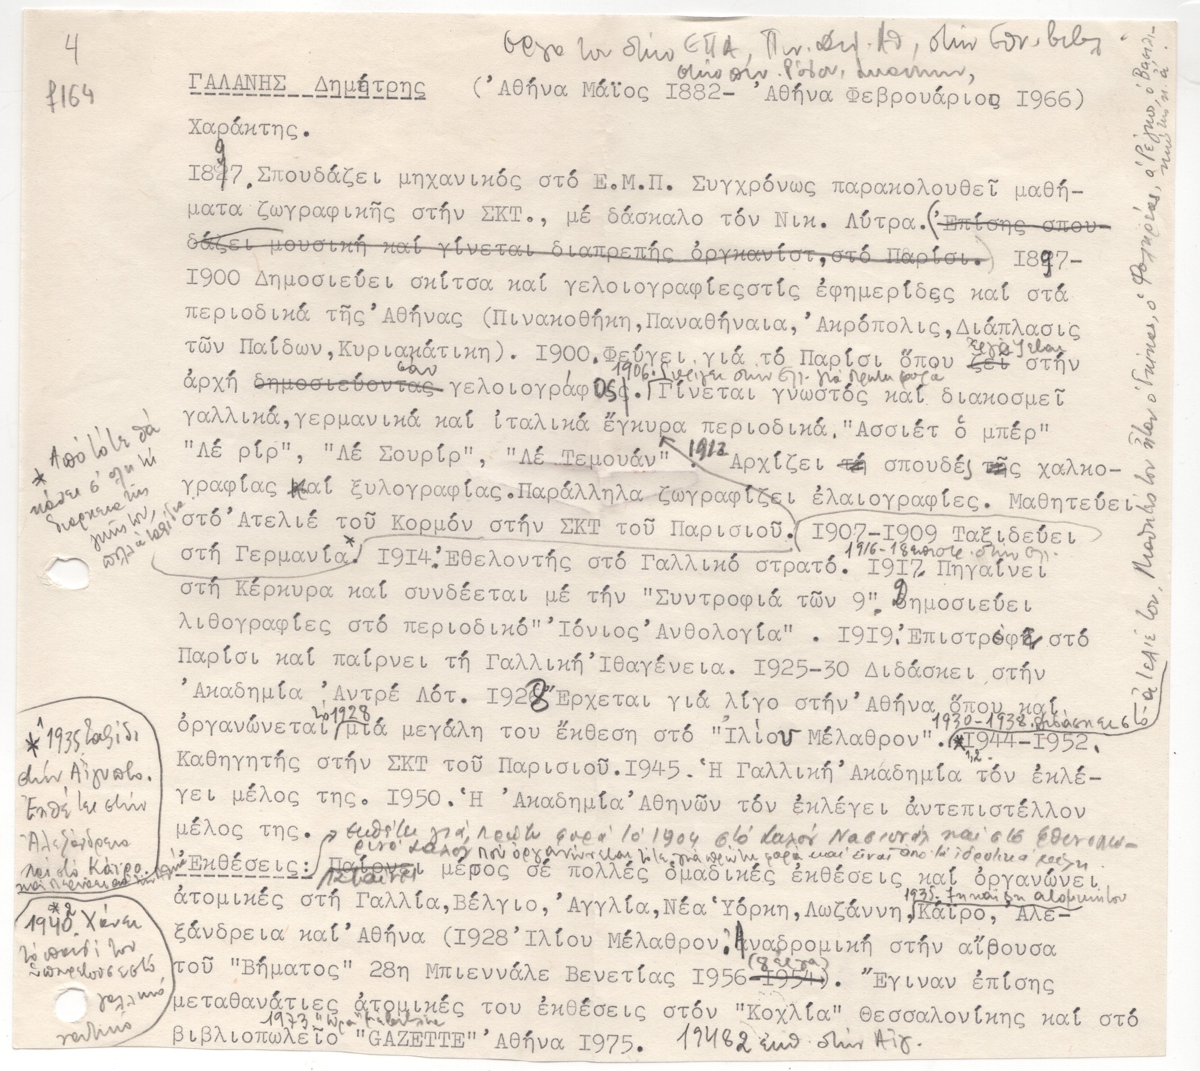 4
f164
έργα του στην ΕΠΑ, Πιν. Δημ. Αθ, στην Εθν.
ΓΑΛΑΝΗΣ Δημήτρης ('Αθήνα Μάϊος 1882- 'Αθήνα Φεβρουάριος 1966)
Χαράκτης.
1897. Σπουδάζει μηχανικός στό Ε.Μ.Π. Συγχρόνως παρακολουθεῖ μαθή-
ματα ζωγραφικῆς στήν ΣΚΤ., μέ δάσκαλο τόν Νικ. Λύτρα. ('Επίσης σπου-
δάζει μουσική καί γίνεται διαπρεπής ὀργκανίστ, στό Παρίσι.) 1897-
1900 Δημοσιεύει σκίτσα καί γελοιογραφίεςστίς ἐφημερίδες καί στά
περιοδικά τῆς 'Αθήνας (Πινακοθήκη, Παναθήναια, 'Ακρόπολις, Διάπλασις
τῶν Παίδων, Κυριακάτικη). 1900. Φεύγει γιά τό Παρίσι ὅπου ζεῖ ἐργάζεται στήν
ἀρχή δημοσιεύοντας σάν γελοιογράφος. 1906. Γίνεται γνωστός καί διακοσμεῖ
γαλλικά, γερμανικά καί ἰταλικά ἔγκυρα περιοδικά. "Ασσιέτ ὅ μπέρ"
"Λέ ρίρ", "Λέ Σουρίρ", "Λέ Τεμουάν". 1912 'Αρχίζει σπουδές τῆς χαλκο-
γραφίας καί ξυλογραφίας. Παράλληλα ζωγραφίζει ἐλαιογραφίες. Μαθητεύει
στό 'Ατελιέ τοῦ Κορμόν στήν ΣΚΤ τοῦ Παρισιοῦ. 1907-1909 Ταξιδεύει
στή Γερμανία.* 1914. 'Εθελοντής στό Γαλλικό στρατό. 1917. Πηγαίνει
στή Κέρκυρα καί συνδέεται μέ τήν "Συντροφιά τῶν 9". Δημοσιεύει
λιθογραφίες στό περιοδικό "'Ιόνιος 'Ανθολογία" . 1919. 'Επιστροφή στό
Παρίσι καί παίρνει τή Γαλλική 'Ιθαγένεια. 1925-30 Διδάσκει στήν
'Ακαδημία 'Αντρέ Λότ. 1928 Ἔρχεται γιά λίγο στήν 'Αθήνα ὅπου καί
ὀργανώνεται τό 1928 μιά μεγάλη του ἔκθεση στό "Ἰλίου Μέλαθρον". 1930-1938 διδάσκει στό *1944-1952.
Καθηγητής στήν ΣΚΤ τοῦ Παρισιοῦ. 1945. 'Η Γαλλική 'Ακαδημία τόν ἐκλέ-
γει μέλος της. 1950. 'Η 'Ακαδημία 'Αθηνῶν τόν ἐκλέγει ἀντεπιστέλλον
μέλος της.
'Εκθέσεις: Παίρνει μέρος σέ πολλές ὁμαδικές ἐκθέσεις καί ὀργανώνει
ἀτομικές στή Γαλλία, Βέλγιο, 'Αγγλία, Νέα 'Υόρκη, Λωζάννη, Κάϊρο, 'Αλε-
ξάνδρεια καί 'Αθήνα (1928 'Ιλίου Μέλαθρον. Αναδρομική στήν αἴθουσα
τοῦ "Βήματος" 28η Μπιεννάλε Βενετίας 1956 -1954). Ἔγιναν ἐπίσης
μεταθανάτιες ἀτομικές του ἐκθέσεις στόν "Κοχλία" Θεσσαλονίκης καί στό
βιβλιοπωλεῖο "GAZETTE" 'Αθήνα 1975.
* Από τότε θά
κάνει σ' όλη τή
διάρκεια της
ζωής του,
πολλά ταξίδια
* 1935 ταξίδι
στήν Αίγυπτο.
Εκθέτει στήν
Αλεξάνδρεια
καί στό Κάιρο.
*2
1940. Χάνει
το παιδί του
γαλλικό
ναυτικό